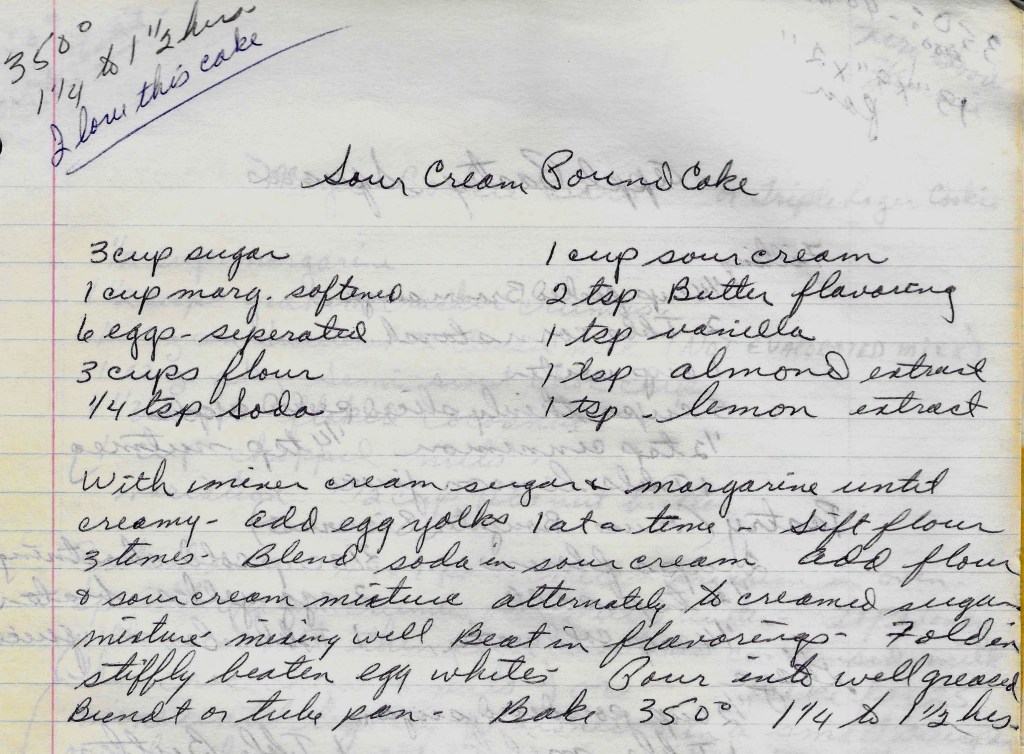 350°
1 1/4 to 1 1/2 hrs.
I love this cake
Sour Cream Pound Cake
3 cup sugar
1 cup marg. softened
6 eggs - seperated
3 cups flour
1/4 tsp Soda
1 cup sour cream
2 tsp Butter flavoring
1 tsp vanilla
1 tsp almond extract
1 tsp - lemon extract
With mixer cream sugar & margarine until
creamy - add egg yolks 1 at a time - Sift flour
3 times - Blend soda in sour cream add flour
& sour cream mixture alternately to creamed sugar
mixture - mixing well Beat in flavorings - Fold in
stiffly beaten egg whites - Pour into well greased
Bundt or tube pan - Bake 350° 1 1/4 to 1 1/2 hrs.